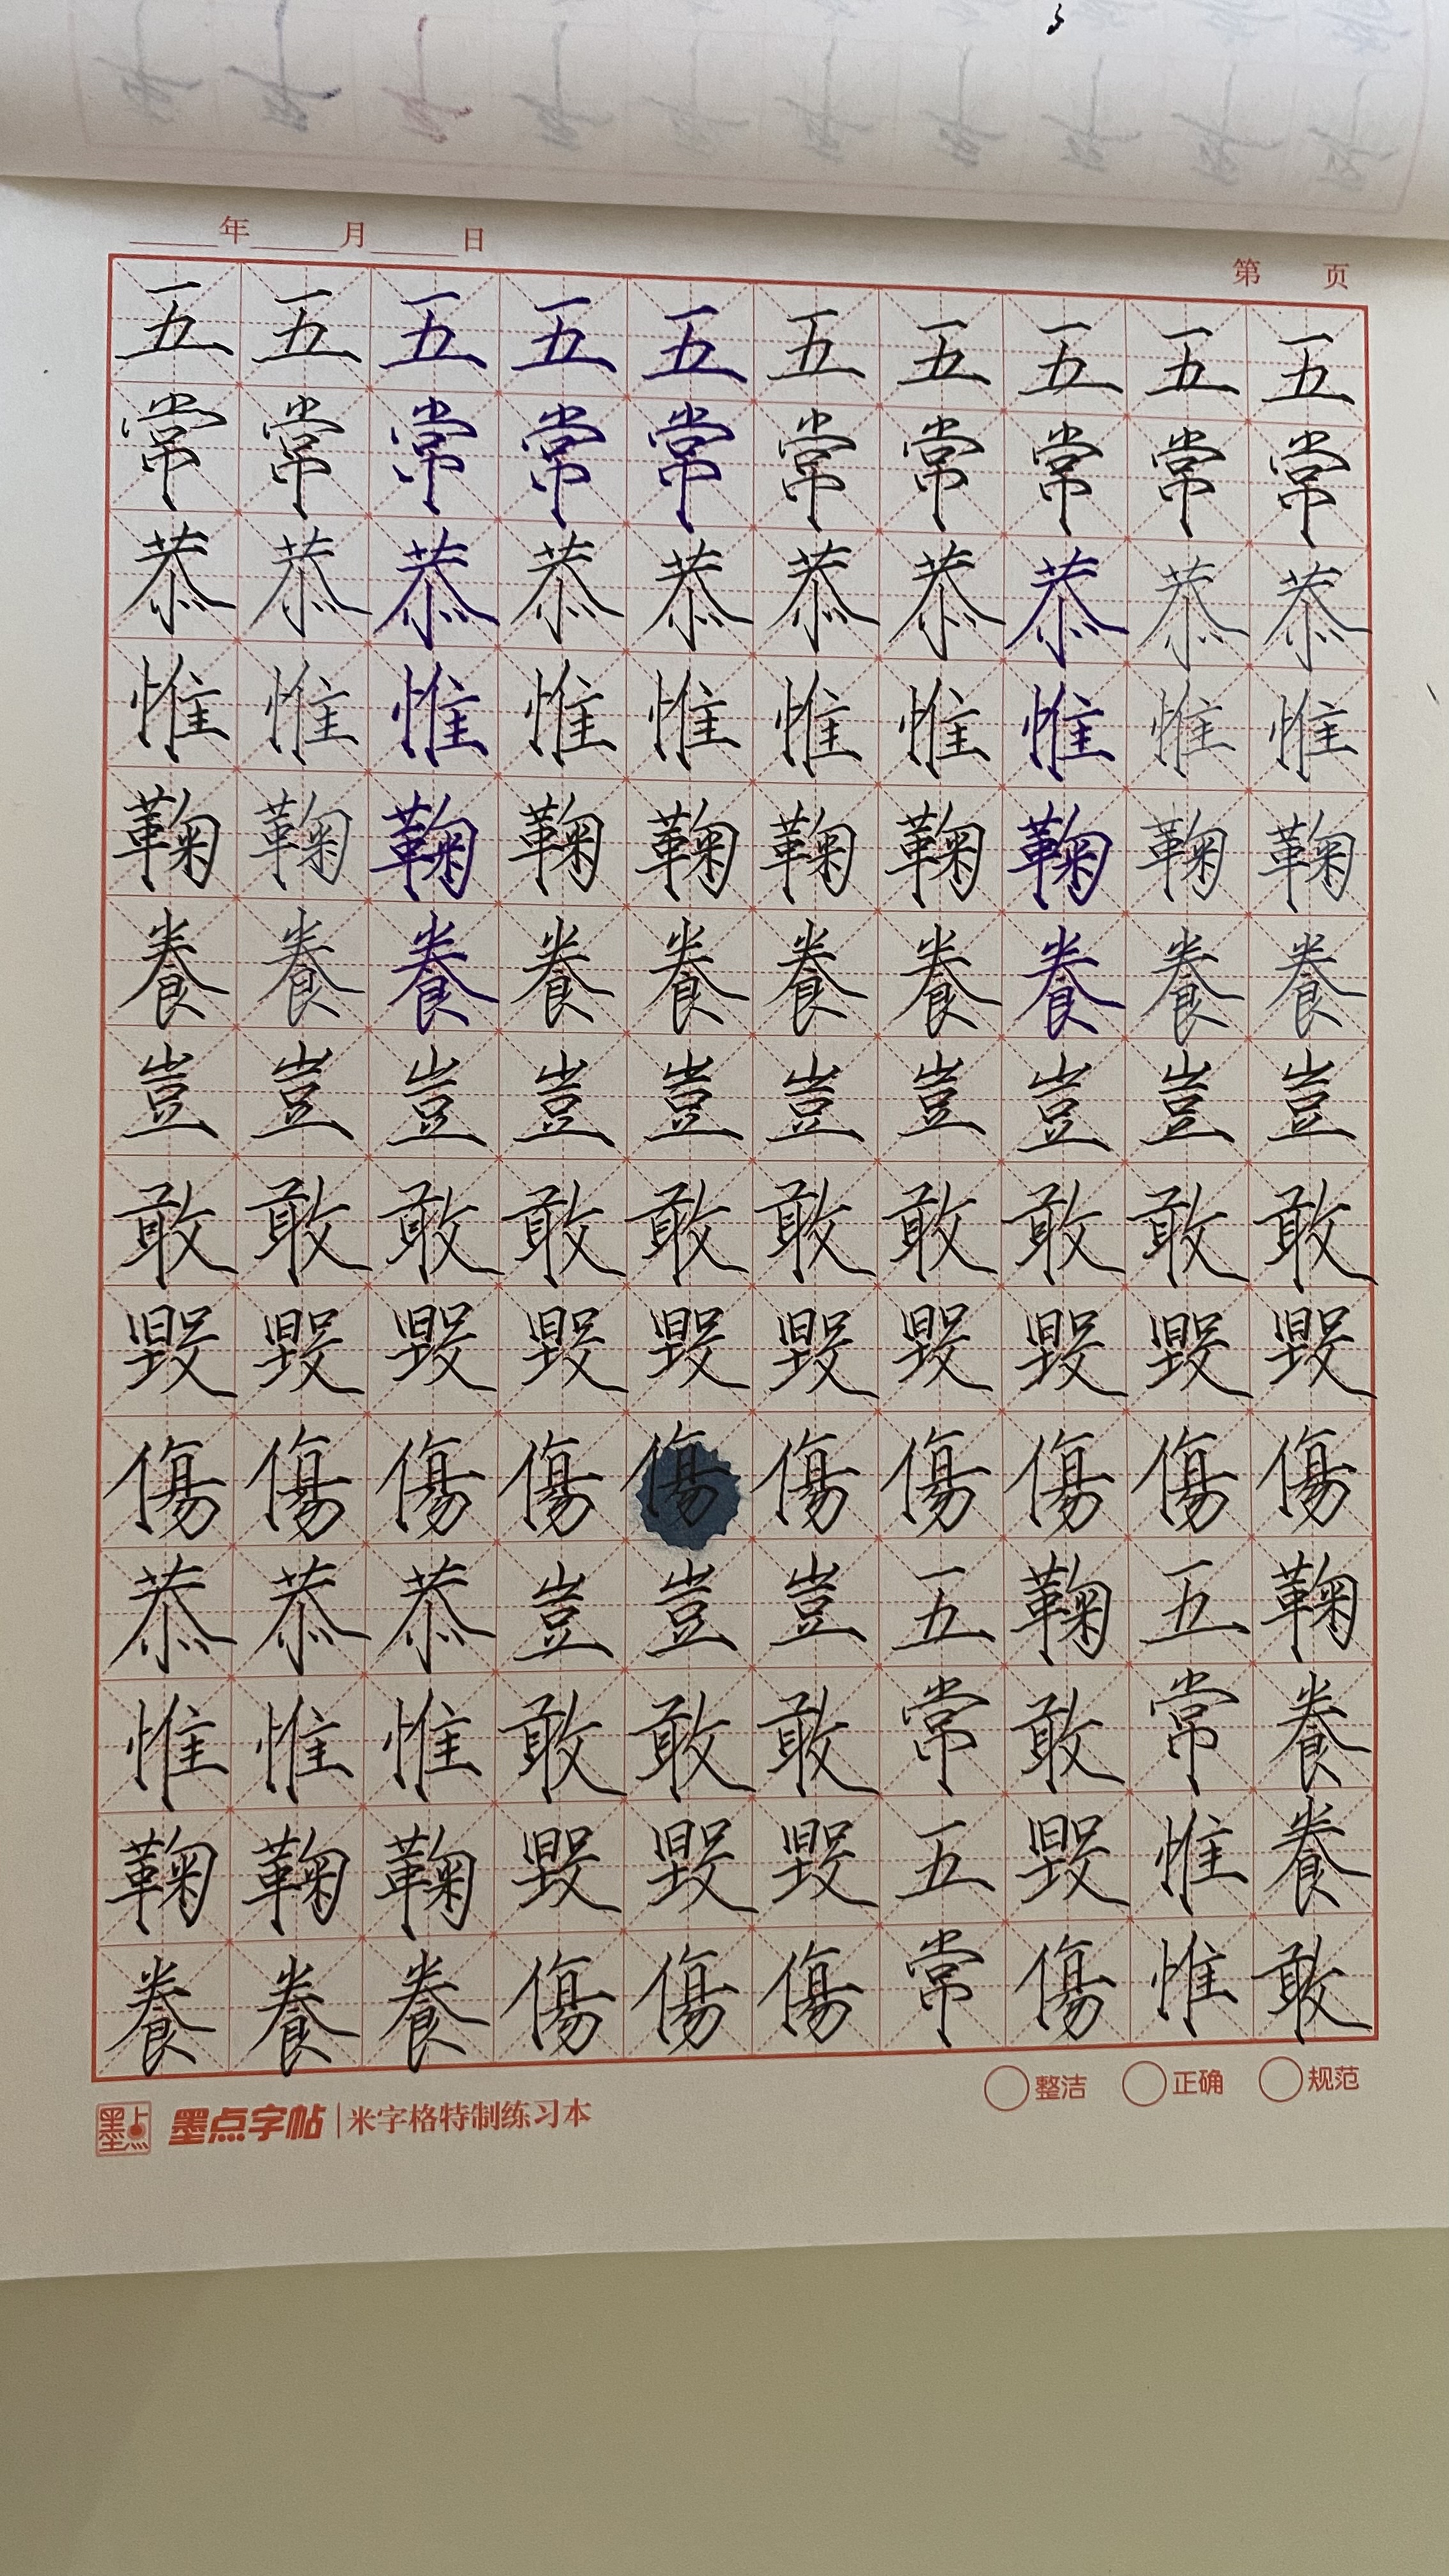 年 月 日
第 页
五五五五五五五五五五
常常常常常常常常常常
恭恭恭恭恭恭恭恭恭恭
惟惟惟惟惟惟惟惟惟惟
鞠鞠鞠鞠鞠鞠鞠鞠鞠鞠
養養養養養養養養養養
豈豈豈豈豈豈豈豈豈豈
敢敢敢敢敢敢敢敢敢敢
毀毀毀毀毀毀毀毀毀毀
傷傷傷傷傷傷傷傷傷傷
恭恭恭豈豈豈五鞠五鞠
惟惟惟敢敢敢常敢常養
鞠鞠鞠毀毀毀五毀惟養
養養養傷傷傷常傷惟敢
整洁 正确 规范
墨点 墨点字帖 | 米字格特制练习本